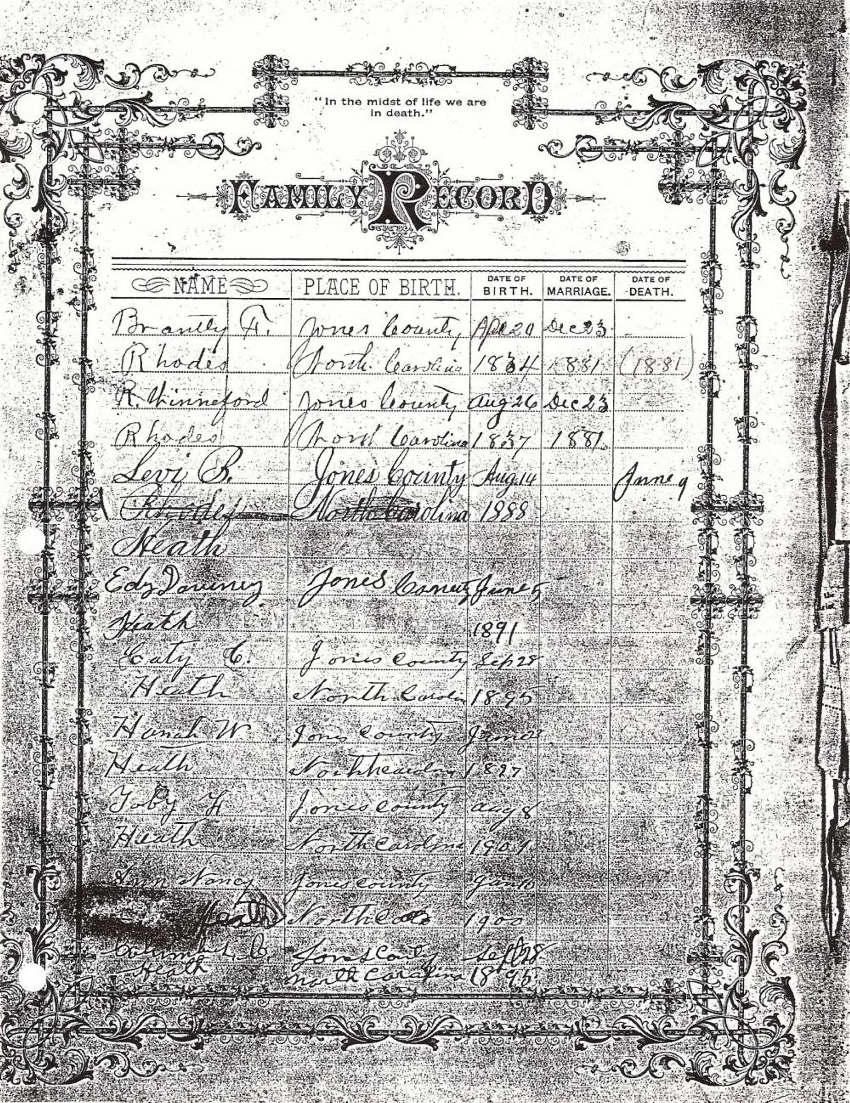 "In the midst of life we are
in death."
FAMILY RECORD
NAME PLACE OF BIRTH. DATE OF BIRTH. DATE OF MARRIAGE. DATE OF DEATH.
Brantly F. Jones County Dec 23
Rhodes North Carolina 1834 1881 (1881)
R. Winneford Jones County Aug 26 Dec 23
Rhodes North Carolina 1837 1881
Levi B. Jones County Aug 14 June 9
Rhodes North Carolina 1888
Heath
Jones County June 5
Heath 1891
Caty C. Jones County Sep 28
Heath North Carolin 1895
Hanah W Jones County
Heath North Carolin
Toby H Jones County Aug 8
Heath North Carolina
Nancy Jones County
Heath North 1900
Jones County Sept 28
Heath North Carolina 1895